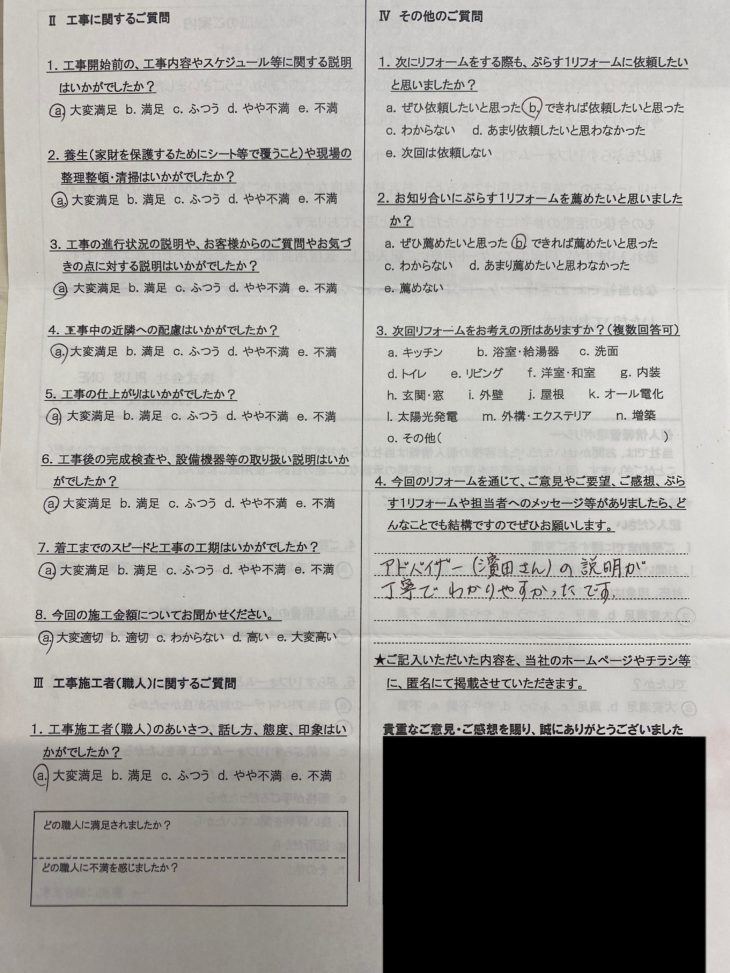 Ⅱ 工事に関するご質問
1. 工事開始前の、工事内容やスケジュール等に関する説明
はいかがでしたか？
a. 大変満足 b. 満足 c. ふつう d. やや不満 e. 不満
2. 養生(家財を保護するためにシート等で覆うこと)や現場の
整理整頓・清掃はいかがでしたか？
a. 大変満足 b. 満足 c. ふつう d. やや不満 e. 不満
3. 工事の進行状況の説明や、お客様からのご質問やお気づ
きの点に対する説明はいかがでしたか？
a. 大変満足 b. 満足 c. ふつう d. やや不満 e. 不満
4. 工事中の近隣への配慮はいかがでしたか？
a. 大変満足 b. 満足 c. ふつう d. やや不満 e. 不満
5. 工事の仕上がりはいかがでしたか？
a. 大変満足 b. 満足 c. ふつう d. やや不満 e. 不満
6. 工事後の完成検査や、設備機器等の取り扱い説明はいか
がでしたか？
a. 大変満足 b. 満足 c. ふつう d. やや不満 e. 不満
7. 着工までのスピードと工事の工期はいかがでしたか？
a. 大変満足 b. 満足 c. ふつう d. やや不満 e. 不満
8. 今回の施工金額についてお聞かせください。
a. 大変適切 b. 適切 c. わからない d. 高い e. 大変高い
Ⅲ 工事施工者(職人)に関するご質問
1. 工事施工者(職人)のあいさつ、話し方、態度、印象はい
かがでしたか？
a. 大変満足 b. 満足 c. ふつう d. やや不満 e. 不満
どの職人に満足されましたか？
どの職人に不満を感じましたか？
Ⅳ その他のご質問
1. 次にリフォームをする際も、ぷらす1リフォームに依頼したい
と思いましたか？
a. ぜひ依頼したいと思った b. できれば依頼したいと思った
c. わからない d. あまり依頼したいと思わなかった
e. 次回は依頼しない
2. お知り合いにぷらす1リフォームを薦めたいと思いました
か？
a. ぜひ薦めたいと思った b. できれば薦めたいと思った
c. わからない d. あまり薦めたいと思わなかった
e. 薦めない
3. 次回リフォームをお考えの所はありますか？(複数回答可)
a. キッチン b. 浴室・給湯器 c. 洗面
d. トイレ e. リビング f. 洋室・和室 g. 内装
h. 玄関・窓 i. 外壁 j. 屋根 k. オール電化
l. 太陽光発電 m. 外構・エクステリア n. 増築
o. その他( )
4. 今回のリフォームを通じて、ご意見やご要望、ご感想、ぷら
す1リフォームや担当者へのメッセージ等がありましたら、ど
んなことでも結構ですのでぜひお願いします。
アドバイザー(濱田さん)の説明が
丁寧でわかりやすかったです。
★ご記入いただいた内容を、当社のホームページやチラシ等
に、匿名にて掲載させていただきます。
貴重なご意見・ご感想を賜り、誠にありがとうございました